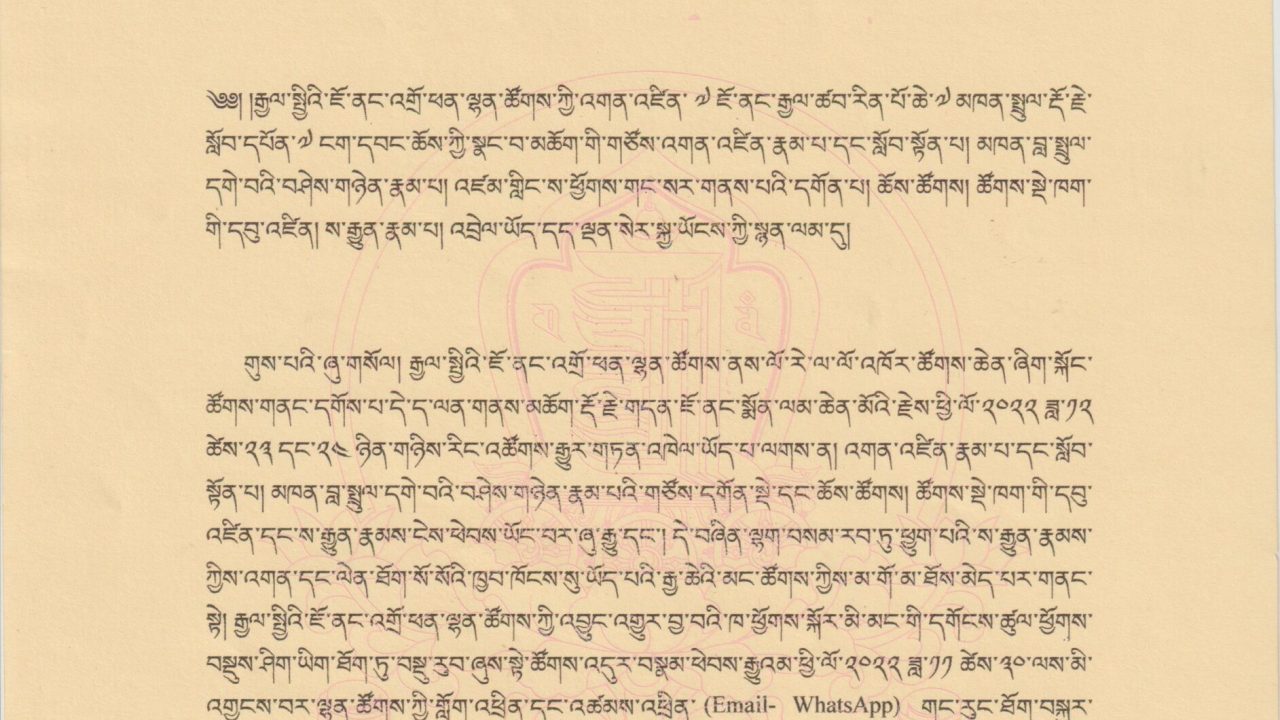 ༄༅། །རྒྱལ་སྤྱིའི་ཇོ་ནང་འགྲོ་ཕན་ལྷན་ཚོགས་ཀྱི་འགན་འཛིན་ ༧ ཇོ་ནང་རྒྱལ་ཚབ་རིན་པོ་ཆེ་༧ མཁན་སྤྲུལ་རྡོ་རྗེ་
སློབ་དཔོན་༧ ངག་དབང་ཆོས་ཀྱི་སྣང་བ་མཆོག་གི་གཙོས་འགན་འཛིན་རྣམ་པ་དང་སློབ་སྟོན་པ། མཁན་བླ་སྤྲུལ་
དགེ་བའི་བཤེས་གཉེན་རྣམ་པ། འཛམ་གླིང་ས་ཕྱོགས་གང་སར་གནས་པའི་དགོན་པ། ཆོས་ཚོགས། ཚོགས་སྡེ་ཁག་
གི་དབུ་འཛིན། ས་རྒྱུན་རྣམ་པ། འབྲེལ་ཡོད་དད་ལྡན་སེར་སྐྱ་ཡོངས་ཀྱི་སྙན་ལམ་དུ།
གུས་པའི་ཞུ་གསོལ། རྒྱལ་སྤྱིའི་ཇོ་ནང་འགྲོ་ཕན་ལྷན་ཚོགས་ནས་ལོ་རེ་ལ་ལོ་འཁོར་ཚོགས་ཆེན་ཞིག་སྐོང་
ཚོགས་གནང་དགོས་པ་དེ་ད་ལན་གནས་མཆོག་རྡོ་རྗེ་གདན་ཇོ་ནང་སྨོན་ལམ་ཆེན་མོའི་རྗེས་ཕྱི་ལོ་༢༠༢༢ ཟླ་༡༢
ཚེས་༢༣ དང་༢༤ ཉིན་གཉིས་རིང་འཚོགས་རྒྱུར་གཏན་འཁེལ་ཡོད་པ་ལགས་ན། འགན་འཛིན་རྣམ་པ་དང་སློབ་
སྟོན་པ། མཁན་བླ་སྤྲུལ་དགེ་བའི་བཤེས་གཉེན་རྣམ་པའི་གཙོས་དགོན་སྡེ་དང་ཆོས་ཚོགས། ཚོགས་སྡེ་ཁག་གི་དབུ་
འཛིན་དང་ས་རྒྱུན་རྣམས་ངེས་ཕེབས་ཡོང་བར་ཞུ་རྒྱུ་དང་། དེ་བཞིན་ལྷག་བསམ་རབ་ཏུ་ཕྱུག་པའི་ས་རྒྱུན་རྣམས་
ཀྱིས་འགན་དང་ལེན་ཐོག་སོ་སོའི་ཁྱབ་ཁོངས་སུ་ཡོད་པའི་རྒྱ་ཆེའི་མང་ཚོགས་ཀྱིས་མ་གོ་མ་ཐོས་མེད་པར་གནང་
སྟེ། རྒྱལ་སྤྱིའི་ཇོ་ནང་འགྲོ་ཕན་ལྷན་ཚོགས་ཀྱི་འབྱུང་འགྱུར་བྱ་བའི་ཁ་ཕྱོགས་སྐོར་མི་མང་གི་དགོངས་ཚུལ་ཕྱོགས་
བསྡུས་ཤིག་ཡིག་ཐོག་ཏུ་བསྡུ་རུབ་ཞུས་ཏེ་ཚོགས་འདུར་བསྣམ་ཕེབས་རྒྱུའམ་ཕྱི་ལོ་༢༠༢༢ ཟླ་༡༡ ཚེས་༣༠ ལས་མི་
འགྱངས་བར་ལྷན་ཚོགས་ཀྱི་གློག་འཕྲིན་དང་འཚམས་འཕྲིན་ (Email- WhatsApp) གང་རུང་ཐོག་བསྐར་